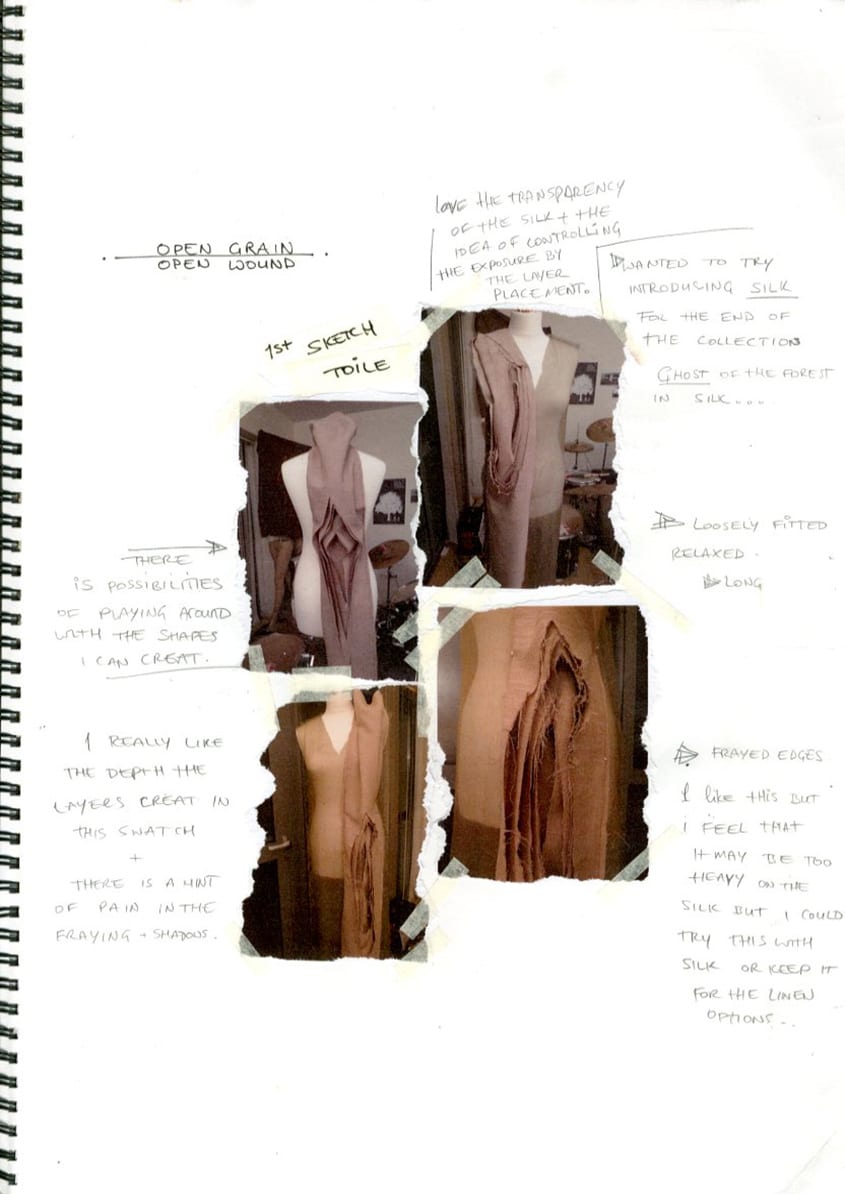 OPEN GRAIN
OPEN WOUND
LOVE THE TRANSPARENCY
OF THE SILK + THE
IDEA OF CONTROLLING
THE EXPOSURE BY
THE LAYER
PLACEMENT.
WANTED TO TRY
INTRODUCING SILK
FOR THE END OF
THE COLLECTION
GHOST OF THE FOREST
IN SILK....
1st SKETCH
TOILE
LOOSELY FITTED
RELAXED.
LONG
THERE
IS POSSIBILITIES
OF PLAYING AROUND
WITH THE SHAPES
I CAN CREAT.
I REALLY LIKE
THE DEPTH THE
LAYERS CREAT IN
THIS SWATCH
+
THERE IS A HINT
OF PAIN IN THE
FRAYING + SHADOWS.
FRAYED EDGES
I like THIS BUT
i FEEL THAT
IT MAY BE TOO
HEAVY ON THE
SILK BUT I COULD
TRY THIS WITH
SILK OR KEEP IT
FOR THE LINEN
OPTIONS..